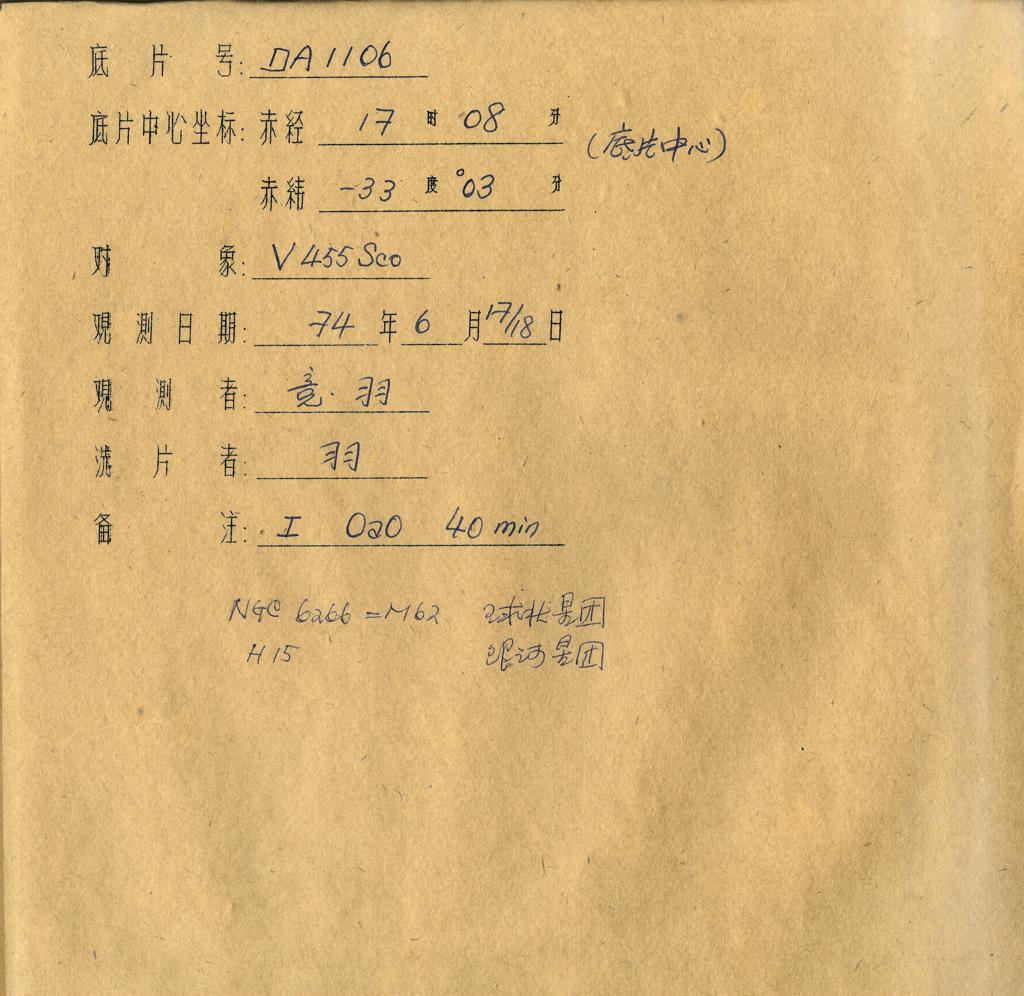 底片号: DA1106
底片中心坐标: 赤经 17 时 08 分 (底片中心)
赤纬 -33 度 °03 分
对象: V455 Sco
观测日期: 74 年 6 月 17/18 日
观测者: 竟·羽
洗片者: 羽
备注: I OaO 40 min
NGC 6266 = M62 球状星团
H15 银河星团